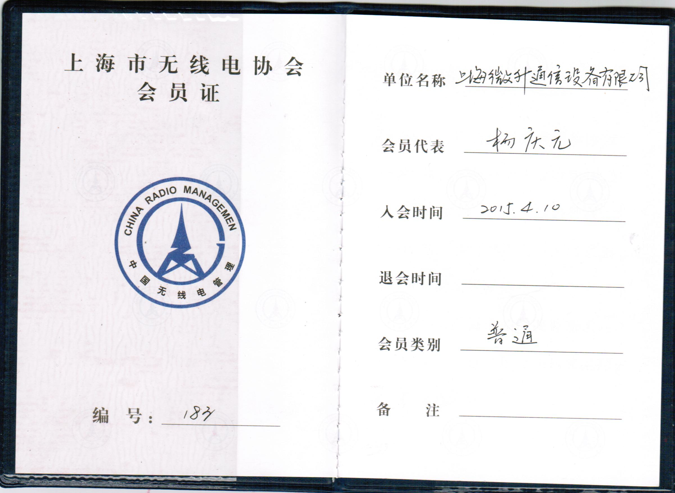 上海市无线电协会
会员证
CHINA RADIO MANAGEMEN
中国无线电管理
编 号: 183
单位名称 上海微升通信设备有限公司
会员代表 杨庆元
入会时间 2015.4.10
退会时间
会员类别 普通
备 注